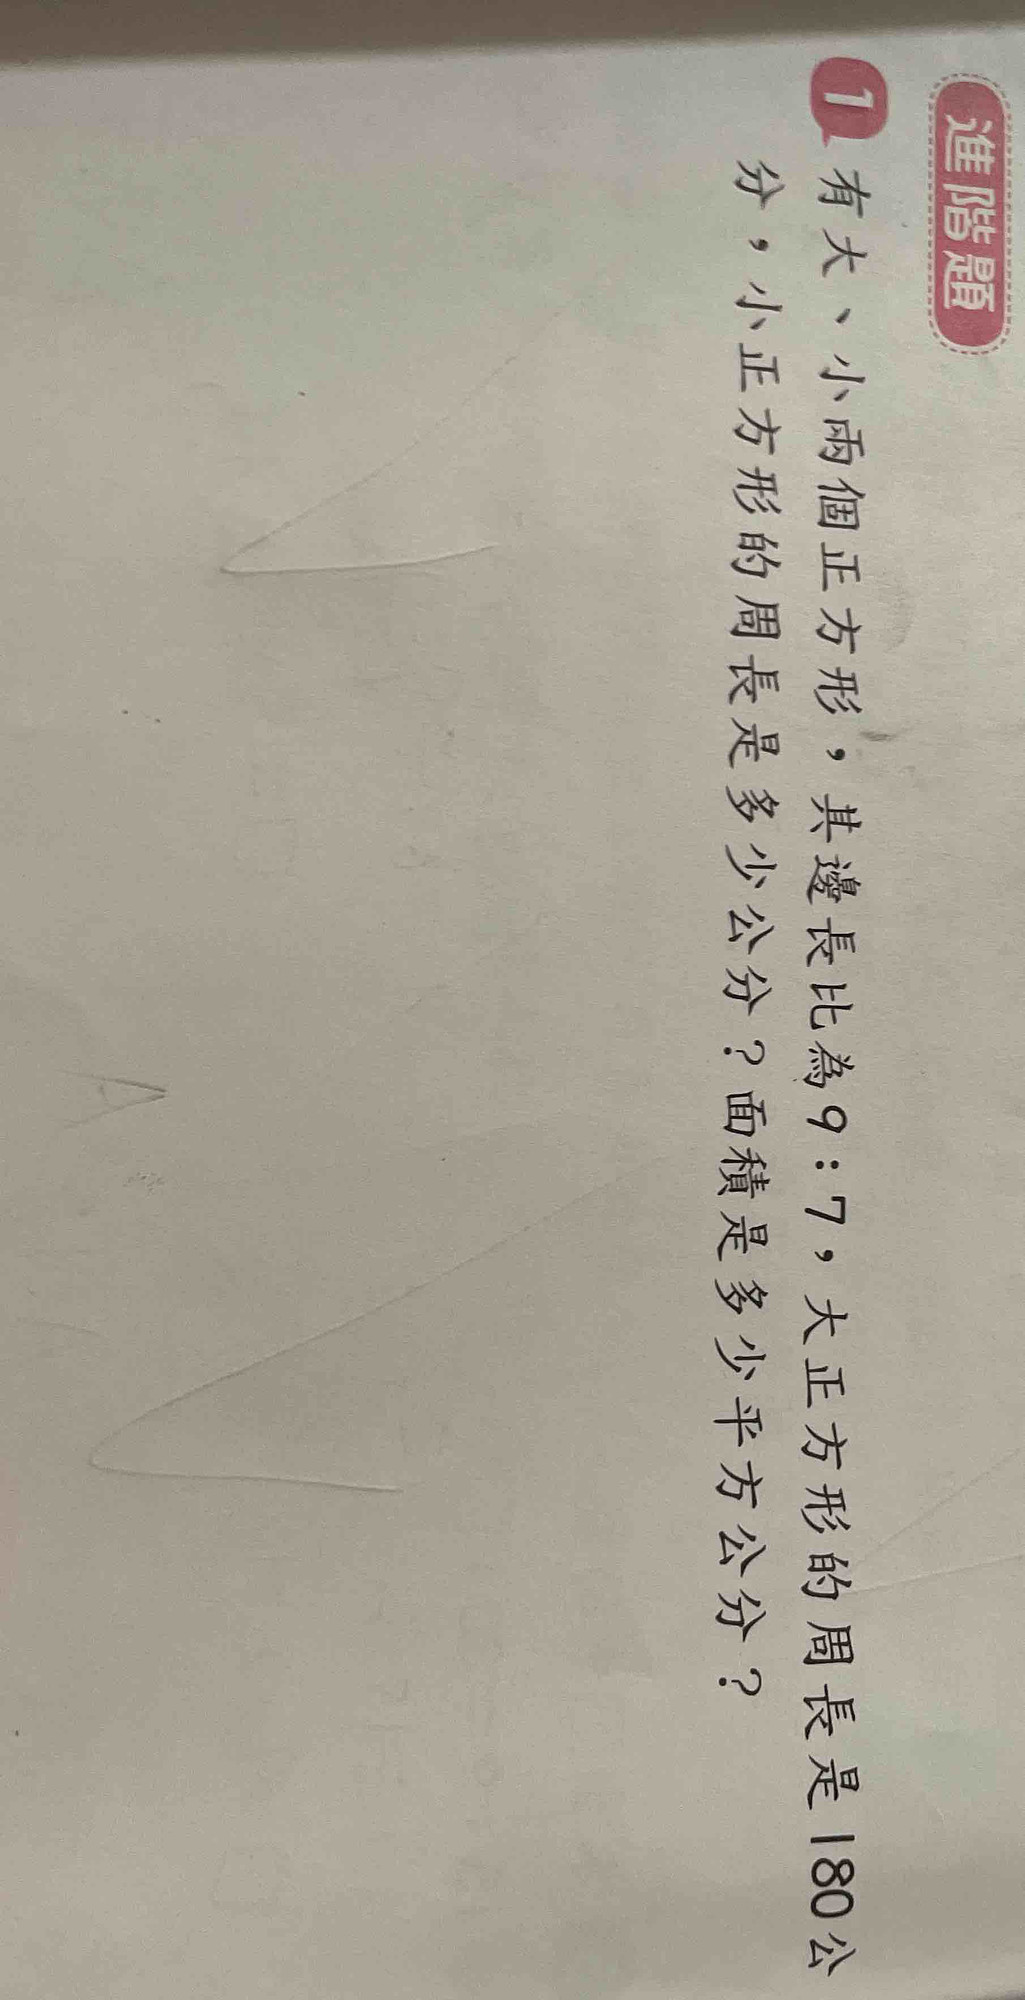 進階題
1 有大、小兩個正方形，其邊長比為9:7，大正方形的周長是180公
分，小正方形的周長是多少公分？面積是多少平方公分？